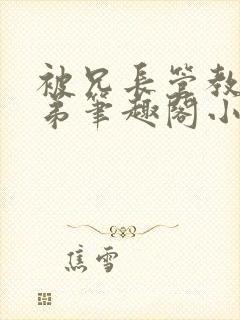 被兄长管教
弟笔趣阁小
焦雪